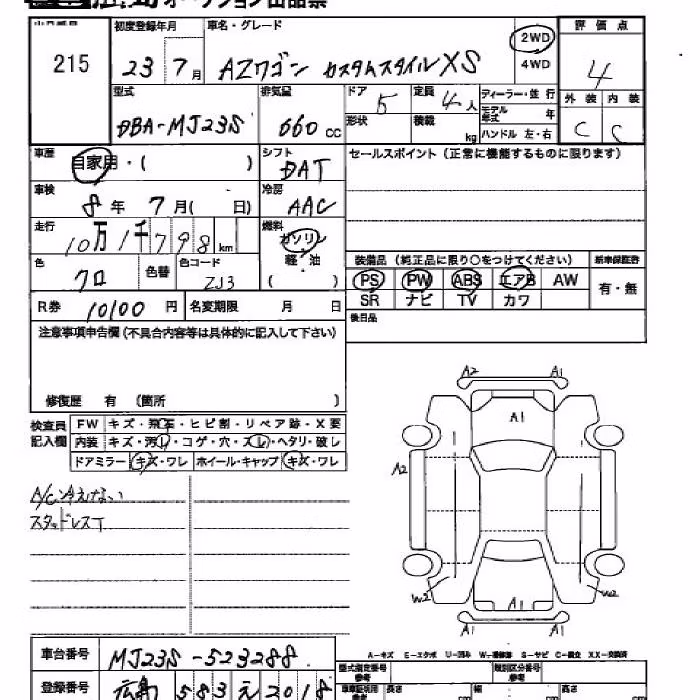 オークション出品票
出品番号 初度登録年月 車名・グレード 2WD 評価点
215 23 7月 AZワゴン カスタムスタイルXS 4WD 4
型式 排気量 ドア 5 定員 4人 ディーラー・並行 外装 内装
DBA-MJ23S 660cc 形状 積載 kg モデル年式 年 C C
ハンドル 左・右
車歴 自家用・( ) シフト DAT セールスポイント(正常に機能するものに限ります)
車検 8年 7月( 日) 冷房 AAC
走行 10万1千798km 燃料 ガソリン
軽・油
( )
色 クロ 色替 色コード ZJ3
装備品(純正品に限り○をつけてください) 新車保証書
PS PW ABS エアB AW 有・無
SR ナビ TV カワ
R券 10100円 名変期限 月 日 後日品
注意事項申告欄(不具合内容等は具体的に記入して下さい)
修復歴 有 (箇所 )
検査員記入欄 FW キズ・飛石・ヒビ割・リペア跡・X要
内装 キズ・汚レ・コゲ・穴・スレ・ヘタリ・破レ
ドアミラー キズ・ワレ ホイール・キャップ キズ・ワレ
A/C冷えない
スタッドレスT
A2 A1
A1
A2
W2 W2
A1
A1 A1
A-キズ E-エクボ U-凹み W-補修跡 S-サビ C-腐食 XX-交換済
車台番号 MJ23S-523288
型式指定番号 参考 類別区分番号 参考
登録番号 広島 583 え 2018
長さ cm 幅 cm 高さ cm